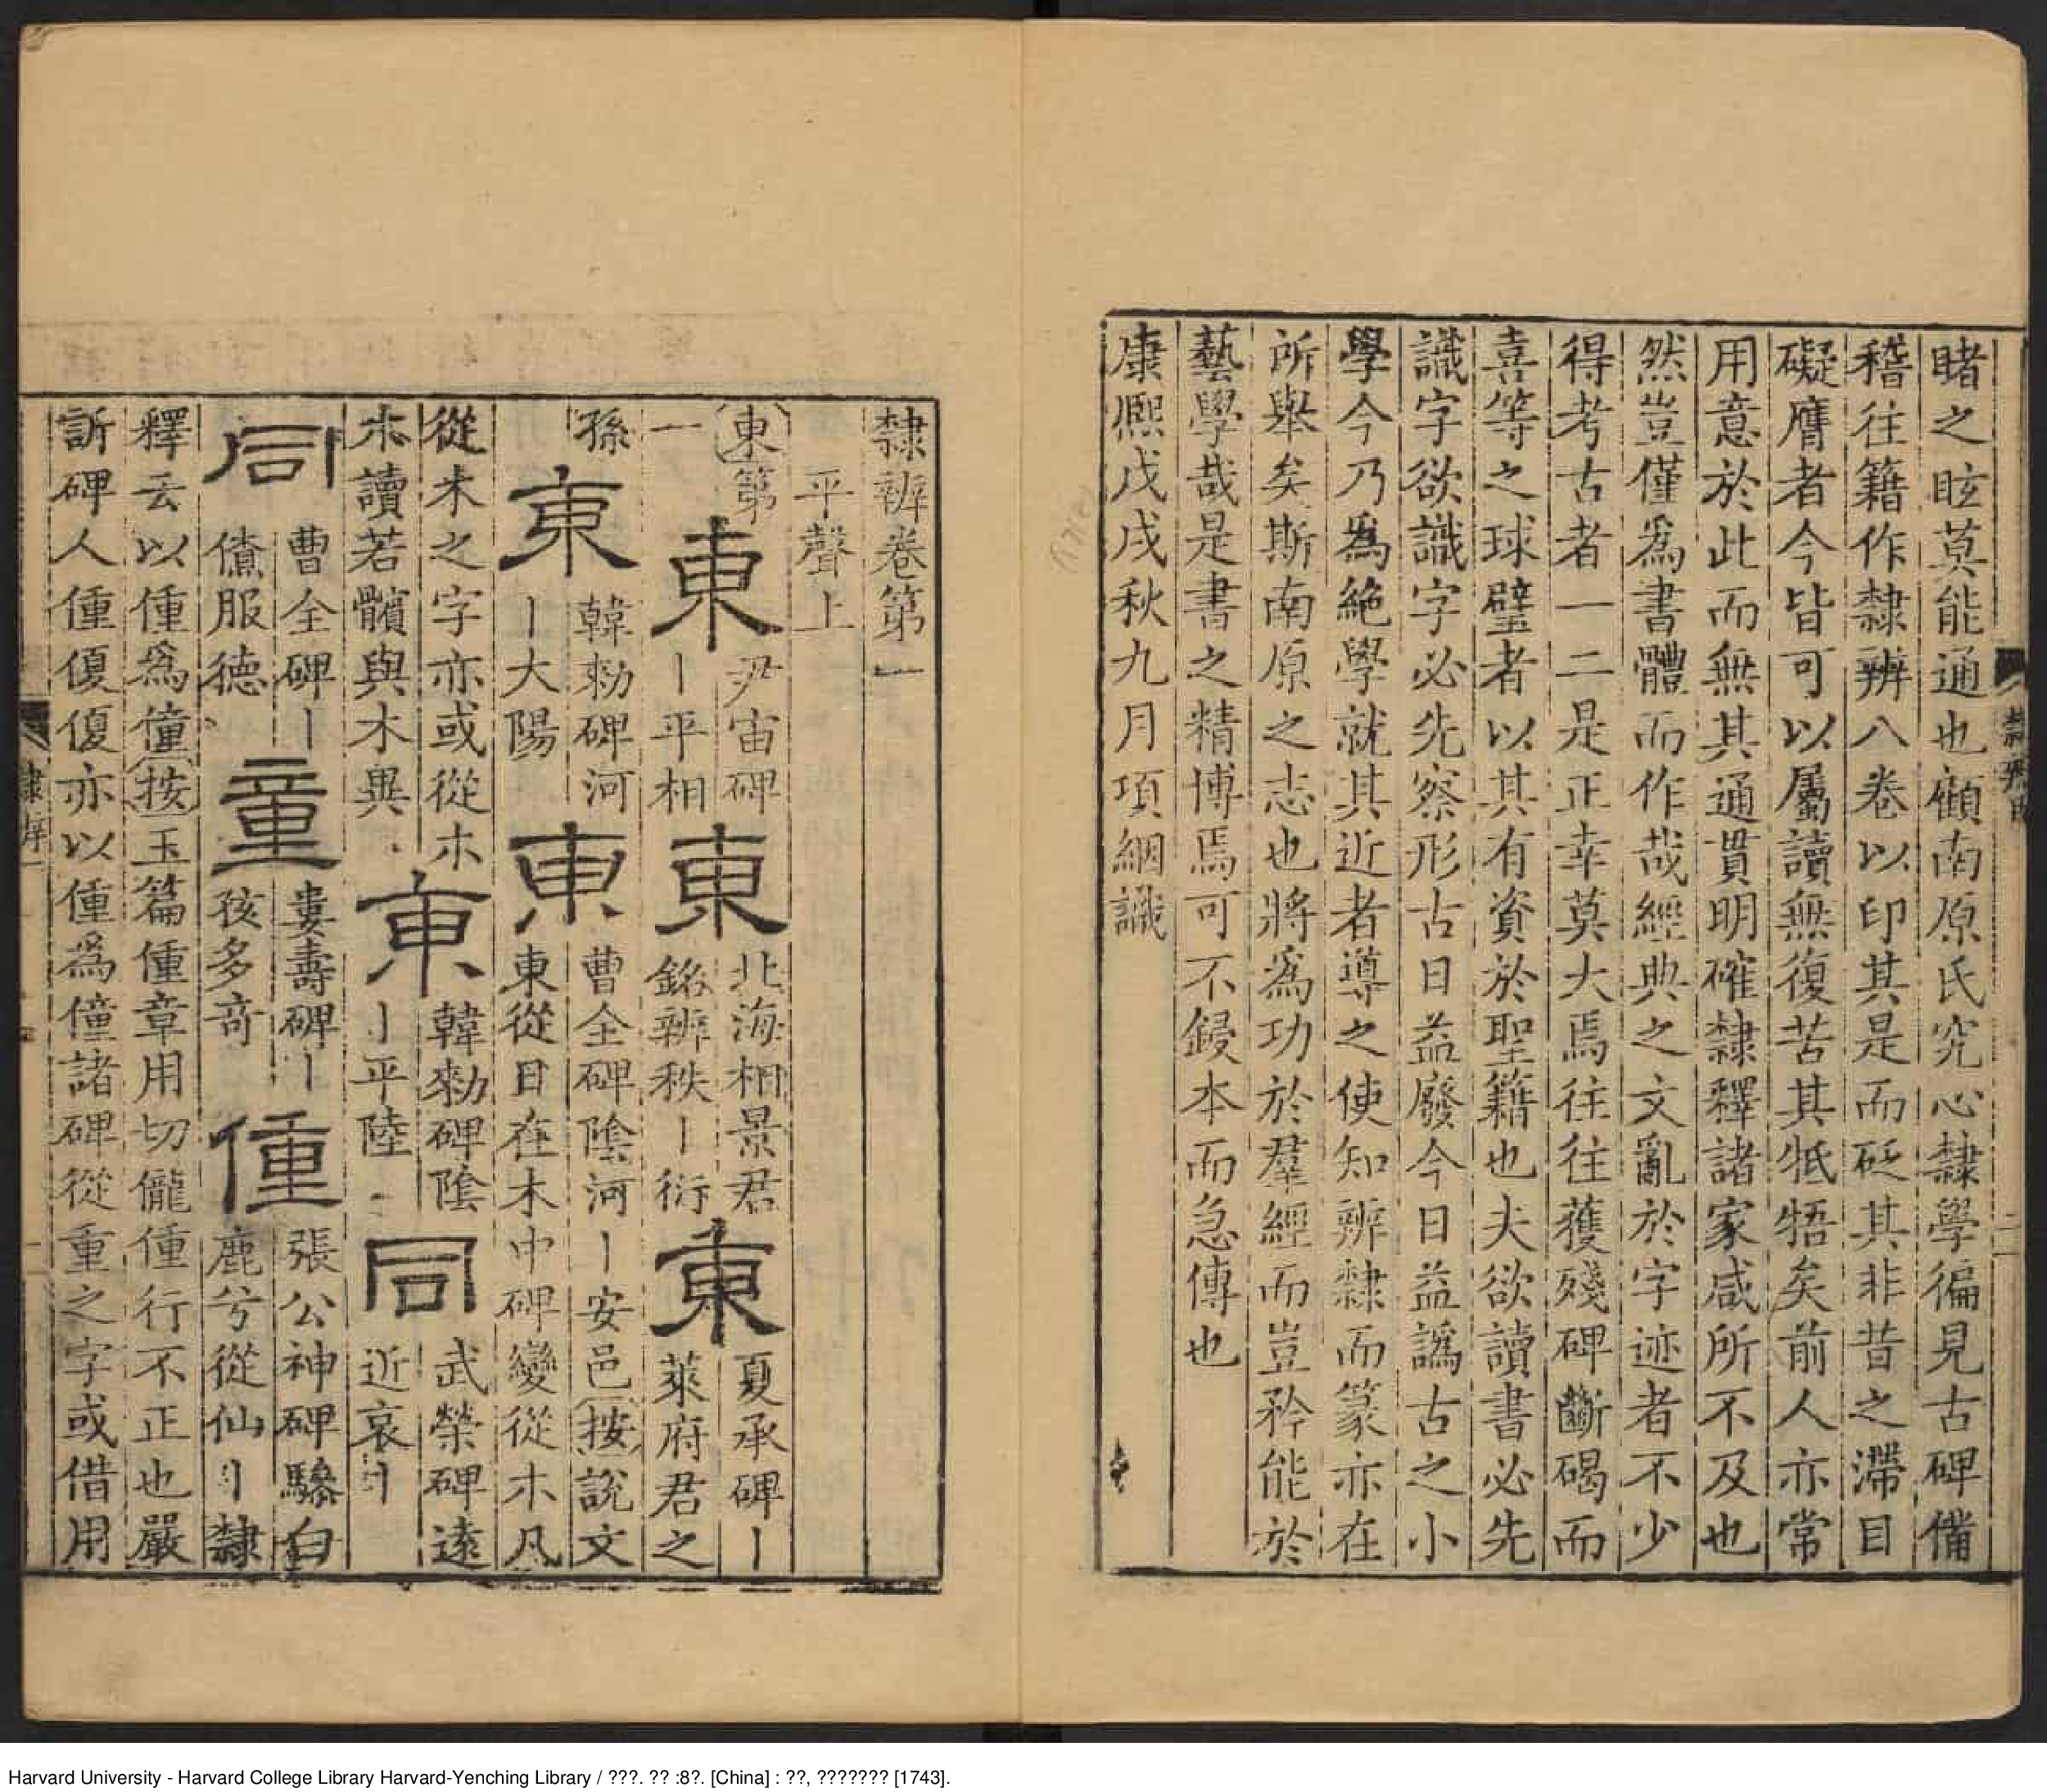 睹之眩莫能通也顧南原氏究心隸學徧見古碑備
稽往籍作隸辨八卷以印其是而砭其非昔之滯目
礙膺者今皆可以屬讀無復苦其牴牾矣前人亦常
用意於此而無其通貫明確隸釋諸家咸所不及也
然豈僅爲書體而作哉經典之文亂於字迹者不少
得考古者一二是正幸莫大焉往往獲殘碑斷碣而
喜等之球璧者以其有資於聖籍也夫欲讀書必先
識字欲識字必先察形古日益廢今日益譌古之小
學今乃爲絶學就其近者導之使知辨隸而篆亦在
所舉矣斯南原之志也將爲功於羣經而豈矜能於
藝學哉是書之精博焉可不鋟本而急傳也
康熙戊戌秋九月項絪識
隸辨卷第一
平聲上
東第一
東 尹宙碑丨平相
東 北海相景君銘辨秩丨衍
東 夏承碑丨萊府君之孫
東 韓勑碑河丨大陽
東 曹全碑陰河丨安邑按說文東從日在木中碑變從木凡從木之字亦或從木木讀若髕與木異
東 韓勑碑陰丨平陸
同 武榮碑遠近哀丨
同 曹全碑丨儥服德
童 婁壽碑丨孩多奇
僮 張公神碑驂白鹿兮從仙丨隸釋云以僮爲僮按玉篇僮章用切儱僮行不正也嚴訢碑人僮傻傻亦以僮爲僮諸碑從重之字或借用
隸辨
Harvard University - Harvard College Library Harvard-Yenching Library / ???. ?? :8?. [China] : ??, ??????? [1743].